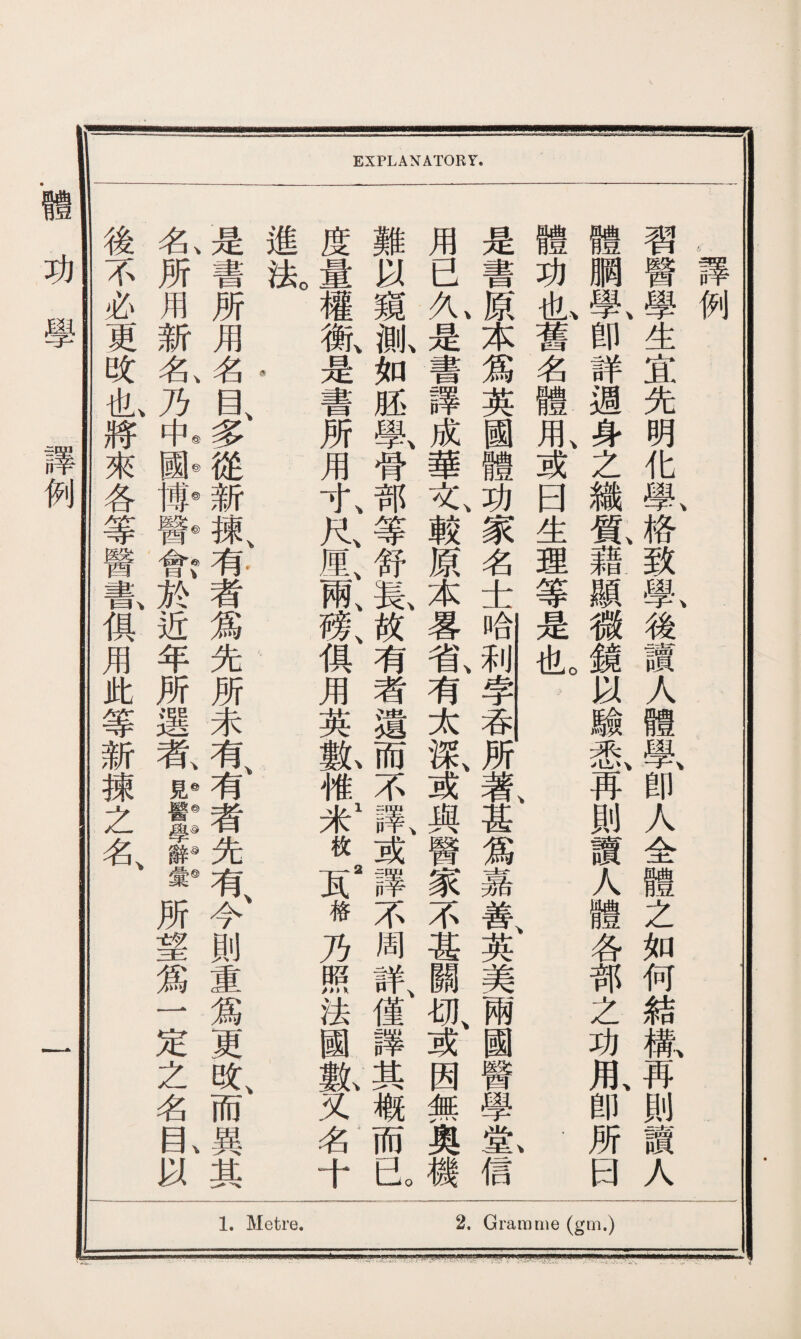 EXPLANATORY.
譯例
習醫學生宜先明化學、格致學、後讀人體學、卽人全體之如何結構、再則讀人
體胴學、卽詳週身之織質、藉顯微鏡以驗悉、再則讀人體各部之功用、卽所曰
體功也、舊名體用、或曰生理等是也。
是書原本爲英國體功家名士哈利孛吞所著、甚爲嘉善、英美兩國醫學堂、信
用已久、是書譯成華文、較原本畧省、有太深、或與醫家不甚關切、或因無奧機
難以窺測、如胚學、骨部等舒長、故有者遺而不譯、或譯不周詳、僅譯其概而已。
度量權衡、是書所用寸、尺、厘、兩、磅、俱用英數、惟米1枚瓦2格乃照法國數、又名十
進法。
是書所用名目、多從新揀、有者爲先所未有、有者先有、今則重爲更改、而異其
名、所用新名、乃中國博醫會、於近年所選者、見醫學辭彙所望爲一定之名目、以
後不必更改也、將來各等醫書、俱用此等新揀之名、
體功學 譯例 一
1. Metre. 2. Gramme (gm.)